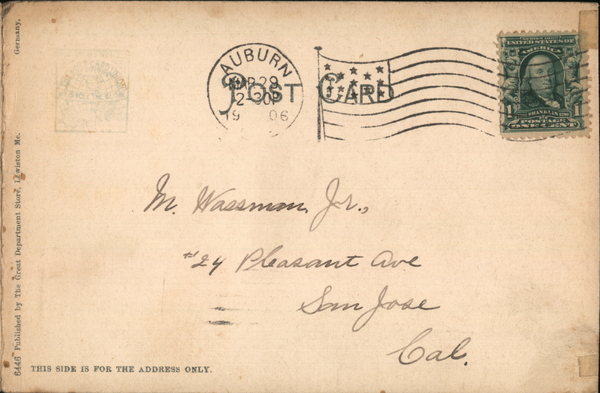 POST CARD
AUBURN
MAR 29
2-30P
1906
UNITED STATES OF
AMERICA
1
FRANKLIN
POSTAGE
ONE CENT
M. Wassman, Jr.,
#24 Pleasant Ave
San Jose
Cal.
THIS SIDE IS FOR THE ADDRESS ONLY.
6446 Published by The Great Department Store, Lewiston Me. Germany.